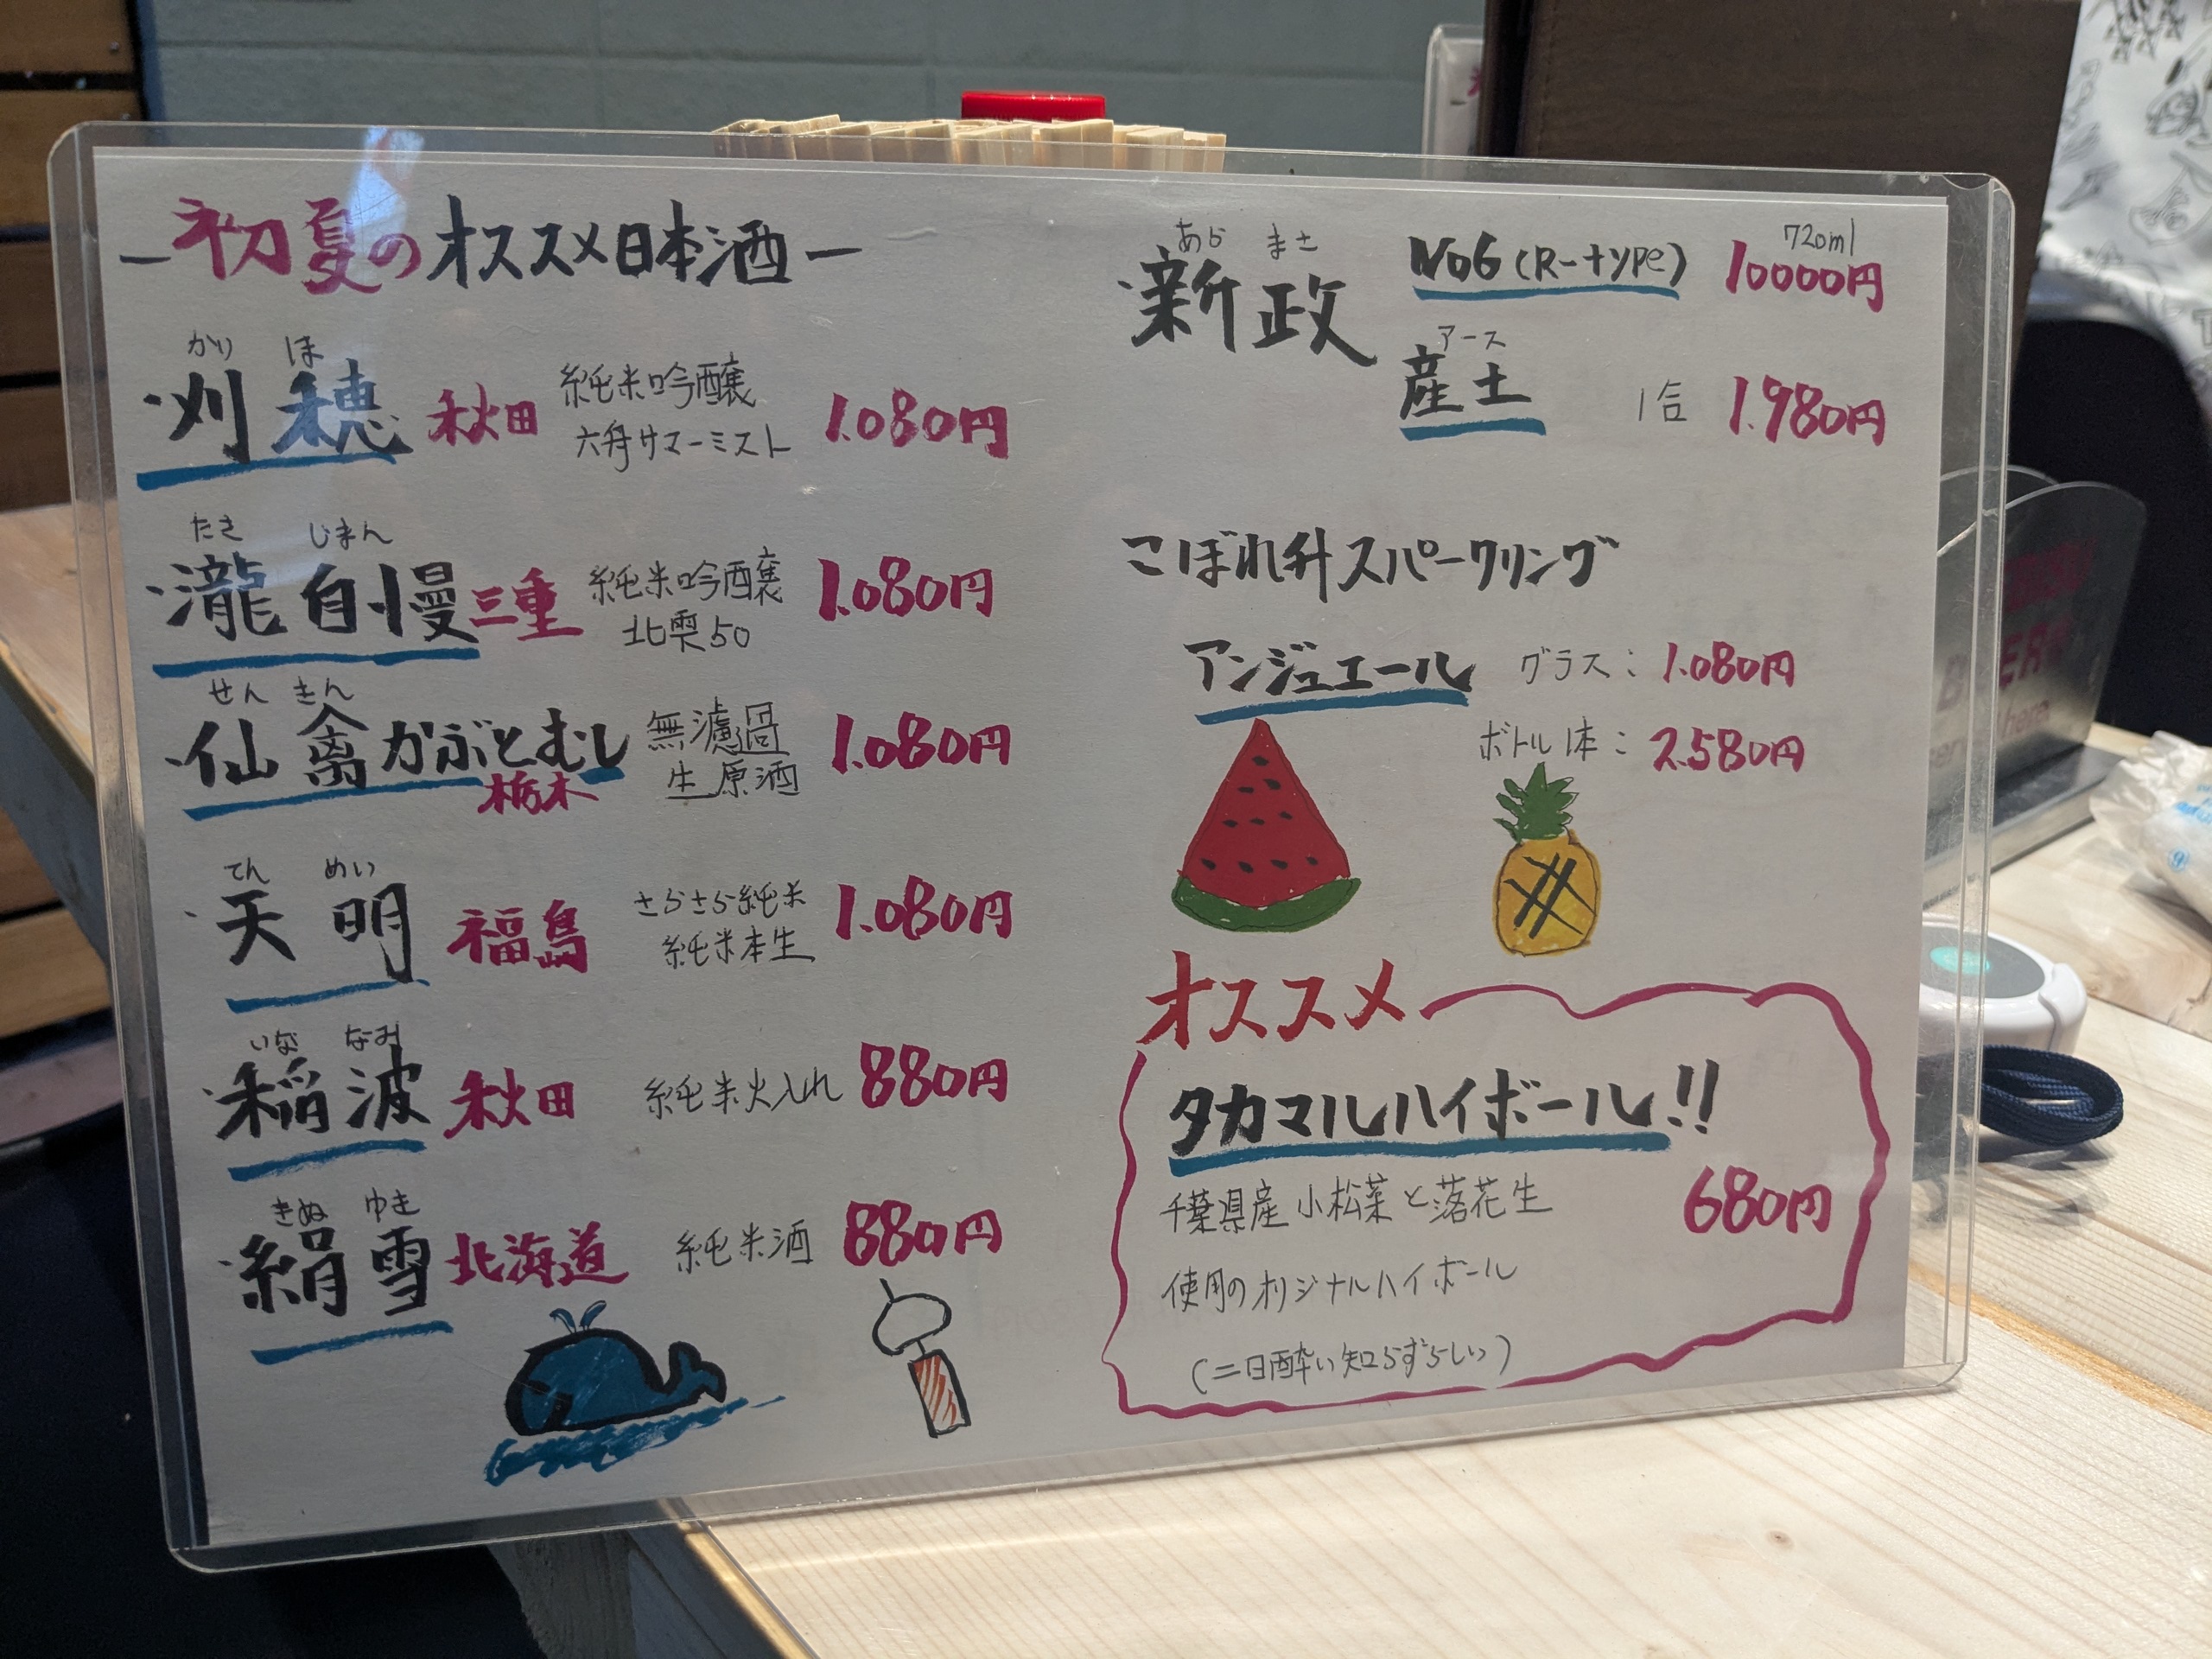 ー初夏のオススメ日本酒ー
かり ほ
・刈穂 秋田 純米吟醸 六舟サマーミスト 1.080円
たき じまん
・瀧自慢 三重 純米吟醸 北雫50 1.080円
せん きん
・仙禽かぶとむし 栃木 無濾過 生原酒 1.080円
てん めい
・天明 福島 さらさら純米 純米本生 1.080円
いな なみ
・稲波 秋田 純米火入れ 880円
きぬ ゆき
・絹雪 北海道 純米酒 880円
あら まさ
・新政 No6(R-type) 720ml 10000円
アース
産土 1合 1.980円
こぼれ升スパークリング
アンジュエール グラス: 1.080円
ボトル1本: 2.580円
オススメ
タカマルハイボール!!
千葉県産小松菜と落花生 680円
使用のオリジナルハイボール
(二日酔い知らずらしい)